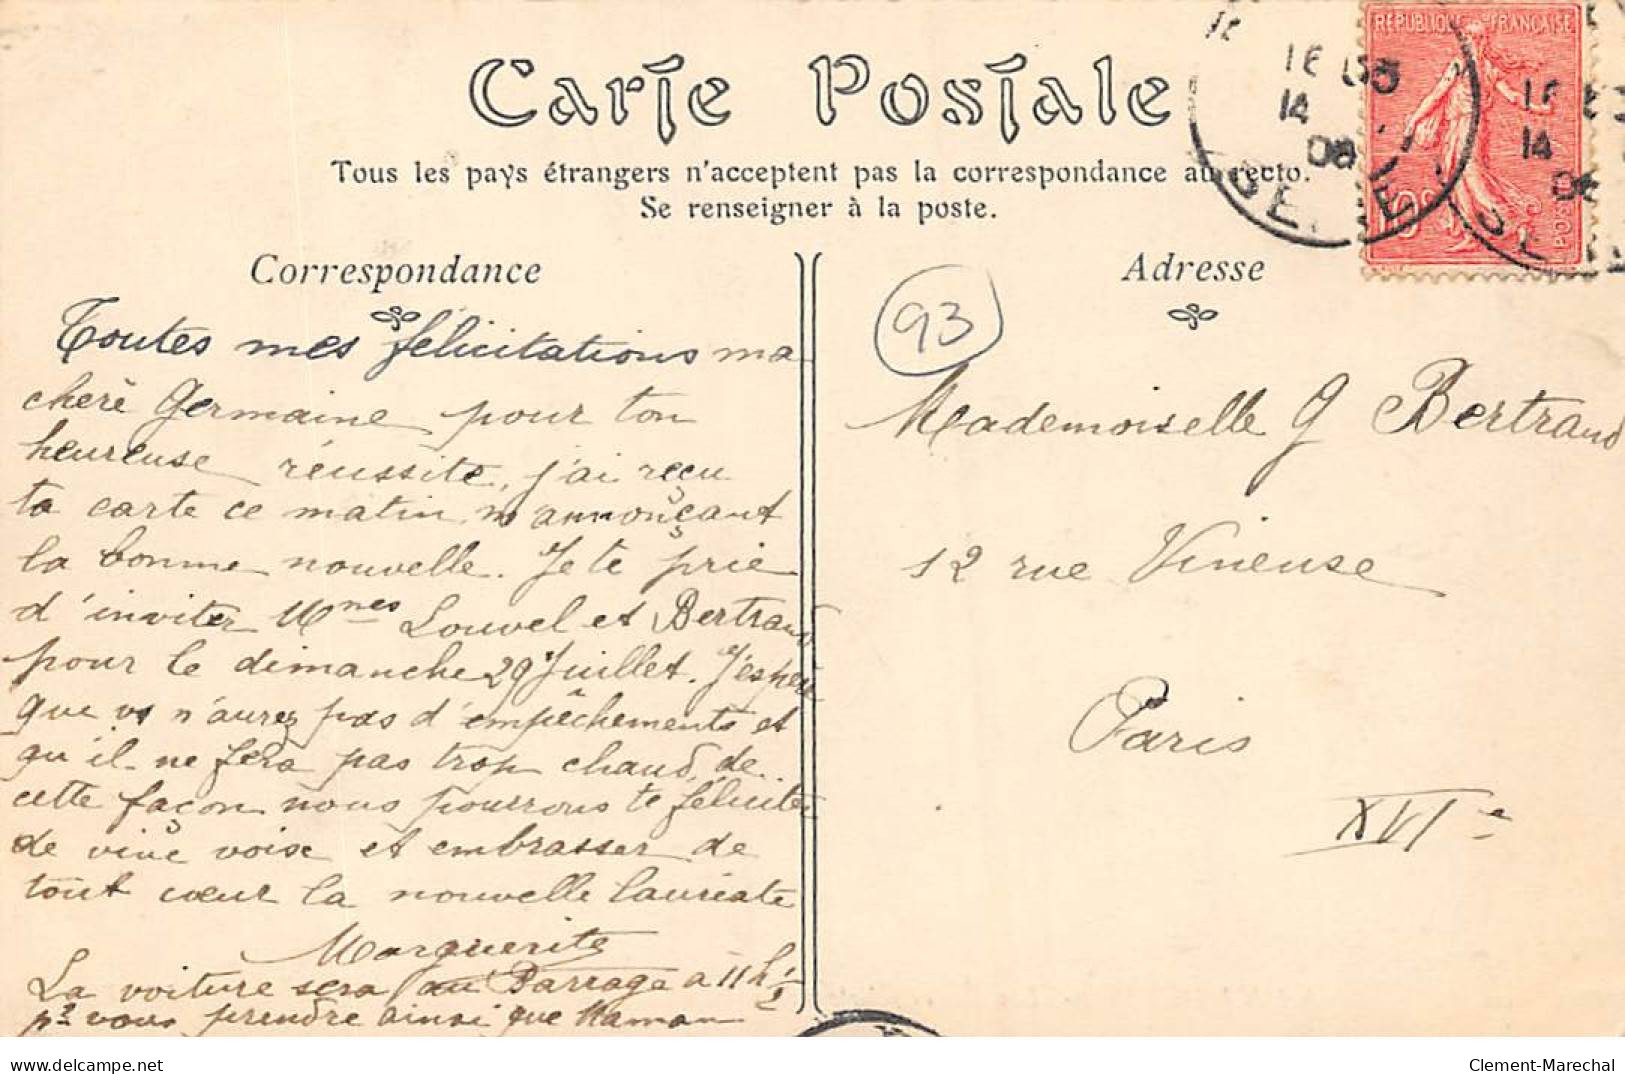 Carte Postale
Tous les pays étrangers n'acceptent pas la correspondance au recto.
Se renseigner à la poste.
Correspondance
Toutes mes félicitations ma
chère Germaine pour ton
heureuse réussite, j'ai reçu
ta carte ce matin m'annonçant
la bonne nouvelle. Je te prie
d'inviter Mmes Louvel et Bertrand
pour le dimanche 29 Juillet. J'espère
que vs n'aurez pas d'empêchements et
qu'il ne fera pas trop chaud, de
cette façon nous pourrons te féliciter
de vive voix et embrasser de
tout cœur la nouvelle lauréate
Marguerite
La voiture sera au Barrage à 11h 1/2
pr vous prendre ainsi que Maman
Adresse
93
Mademoiselle G Bertrand
12 rue Vineuse
Paris
XVIe
REPUBLIQUE FRANÇAISE
10c
POSTES
16
14
06
SEINE
16
14
06
SEINE
https://www.delcampe.net
Clement-Marechal